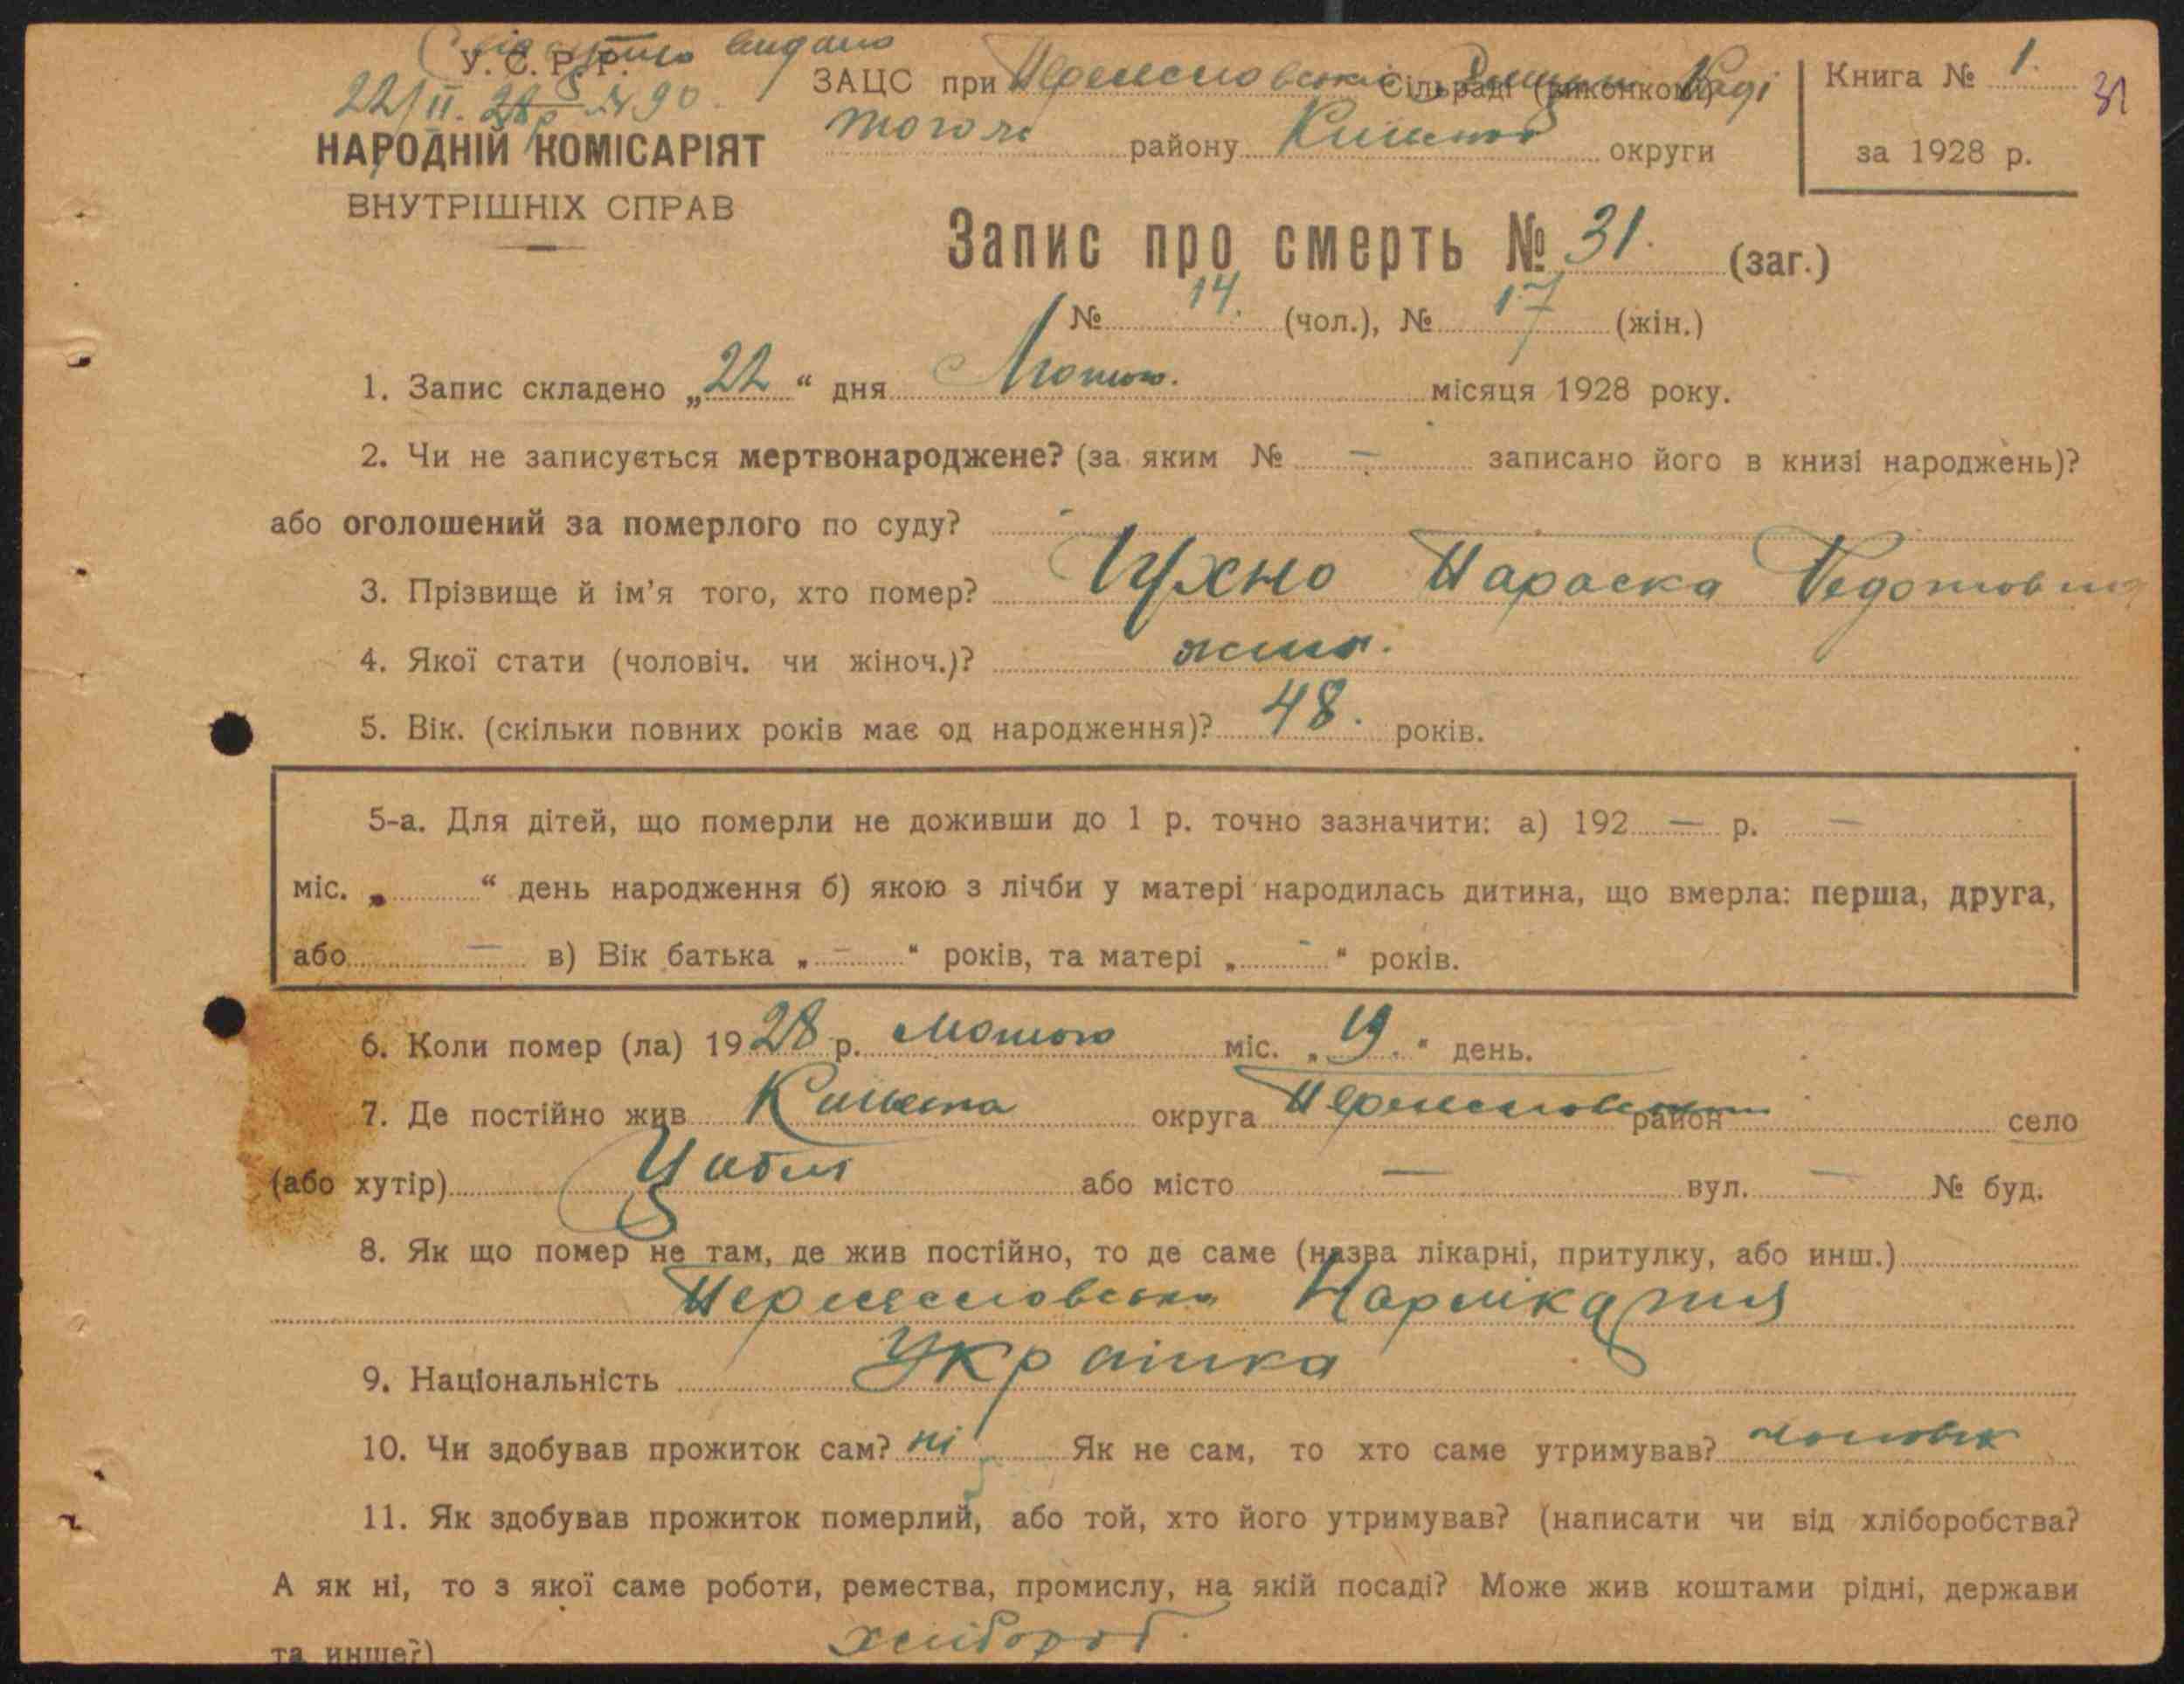 Свідоцтво видано
У. С. Р. Р.
22/II. 28 р № 90.
НАРОДНІЙ КОМІСАРІЯТ
ВНУТРІШНІХ СПРАВ
ЗАЦС при Переяславські Сільраді (виконкомі) Раді
того ж району Київської округи
Книга № 1.
за 1928 р.
31
Запис про смерть № 31. (заг.)
№ 14. (чол.), № 17 (жін.)
1. Запис складено „22“ дня Лютого. місяця 1928 року.
2. Чи не записується мертвонароджене? (за яким № — записано його в книзі народжень)?
або оголошений за померлого по суду? -
3. Прізвище й ім'я того, хто помер? Чухно Параска Федотовна
4. Якої стати (чоловіч. чи жіноч.)? жіноч.
5. Вік. (скільки повних років має од народження)? 48. років.
5-а. Для дітей, що померли не доживши до 1 р. точно зазначити: а) 192 — р. —
міс. „ “ день народження б) якою з лічби у матері народилась дитина, що вмерла: перша, друга,
або — в) Вік батька „ — “ років, та матері „ - “ років.
6. Коли помер (ла) 1928 р. Лютого міс. „19.“ день.
7. Де постійно жив Київська округа Переяславський район село
(або хутір) Циблі або місто — вул. — № буд.
8. Як що помер не там, де жив постійно, то де саме (назва лікарні, притулку, або инш.)
Переяславська Нарлікарня
9. Національність Українка
10. Чи здобував прожиток сам? ні Як не сам, то хто саме утримував? чоловік
11. Як здобував прожиток померлий, або той, хто його утримував? (написати чи від хліборобства?
А як ні, то з якої саме роботи, ремества, промислу, на якій посаді? Може жив коштами рідні, держави
та инше?) хлібороб.